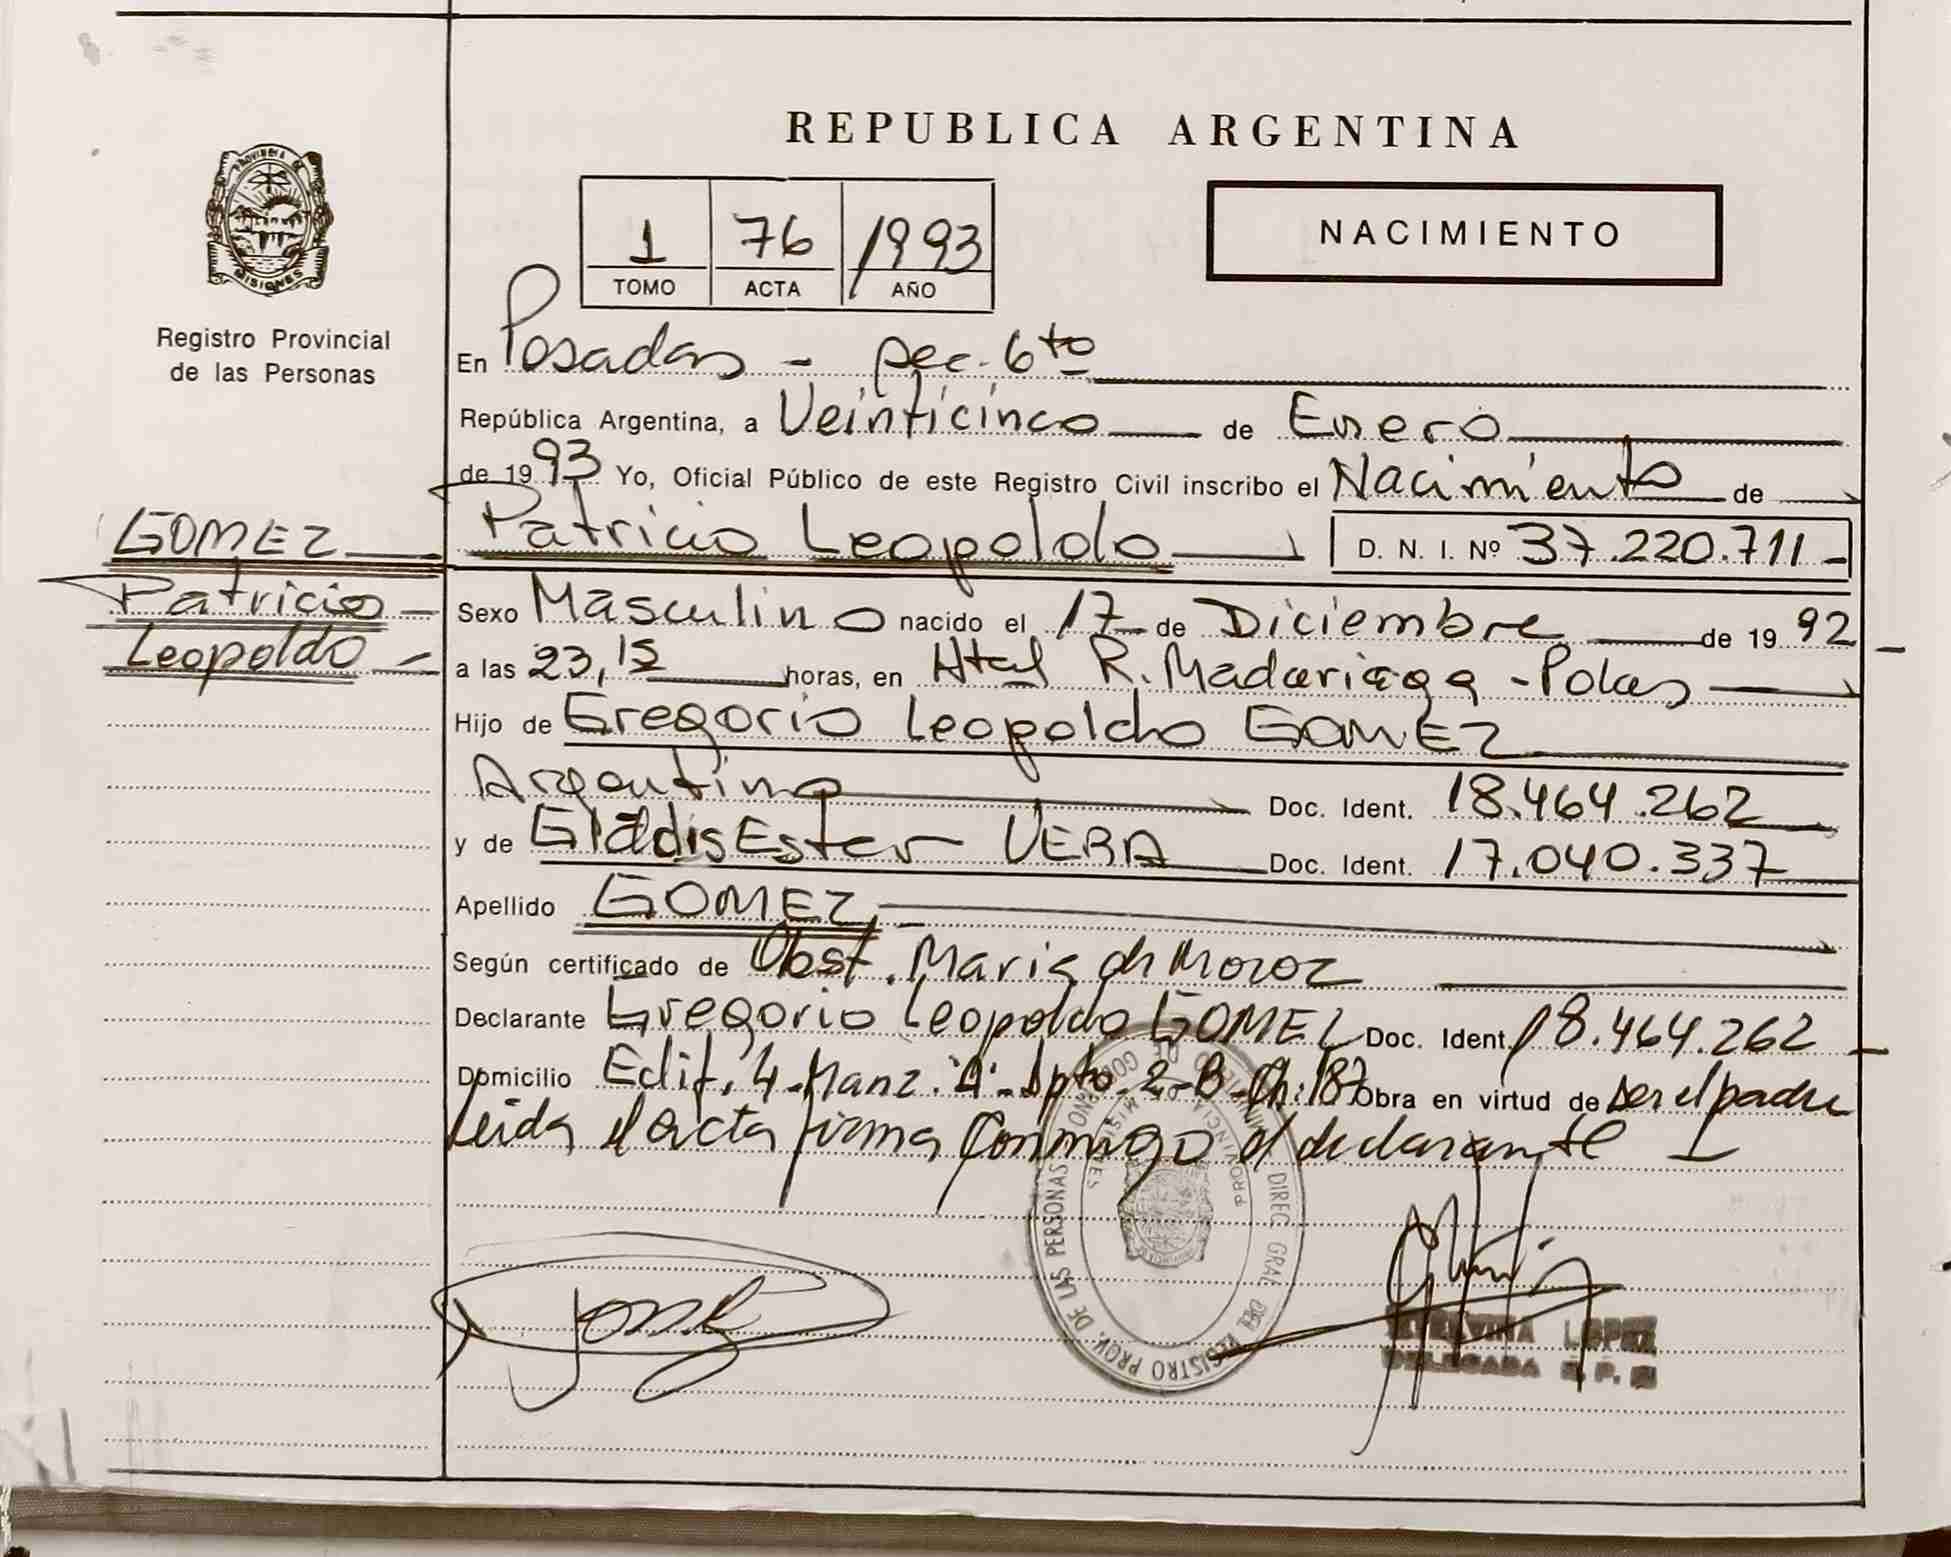 REPUBLICA ARGENTINA
PROVINCIA DE
MISIONES
Registro Provincial
de las Personas
1 76 1993
TOMO ACTA AÑO
NACIMIENTO
En Posadas - sec. 6to
República Argentina, a Veinticinco de Enero
de 1993 Yo, Oficial Público de este Registro Civil inscribo el Nacimiento de
GOMEZ
Patricio
Leopoldo
Patricio Leopoldo D. N. I. Nº 37.220.711-
Sexo Masculino nacido el 17 de Diciembre de 1992
a las 23,15 horas, en Htal R. Madariaga -
Hijo de Gregorio Leopoldo GOMEZ
Argentino Doc. Ident. 18.464.262
y de Gladis Ester VERA Doc. Ident. 17.040.337
Apellido GOMEZ
Según certificado de Obst. Maria
Declarante Gregorio Leopoldo GOMEZ Doc. Ident. 18.464.262
Domicilio Edif. 4-Manz. "A"-Dpto. 2-B-Ch. 187 Obra en virtud de ser el padre
Leida el acta firma conmigo el declarante
DIREC. GRAL. DEL REGISTRO PROV. DE LAS PERSONAS
MINISTERIO DE GOBIERNO
PROVINCIA DE MISIONES
LOPEZ
DELEGADA